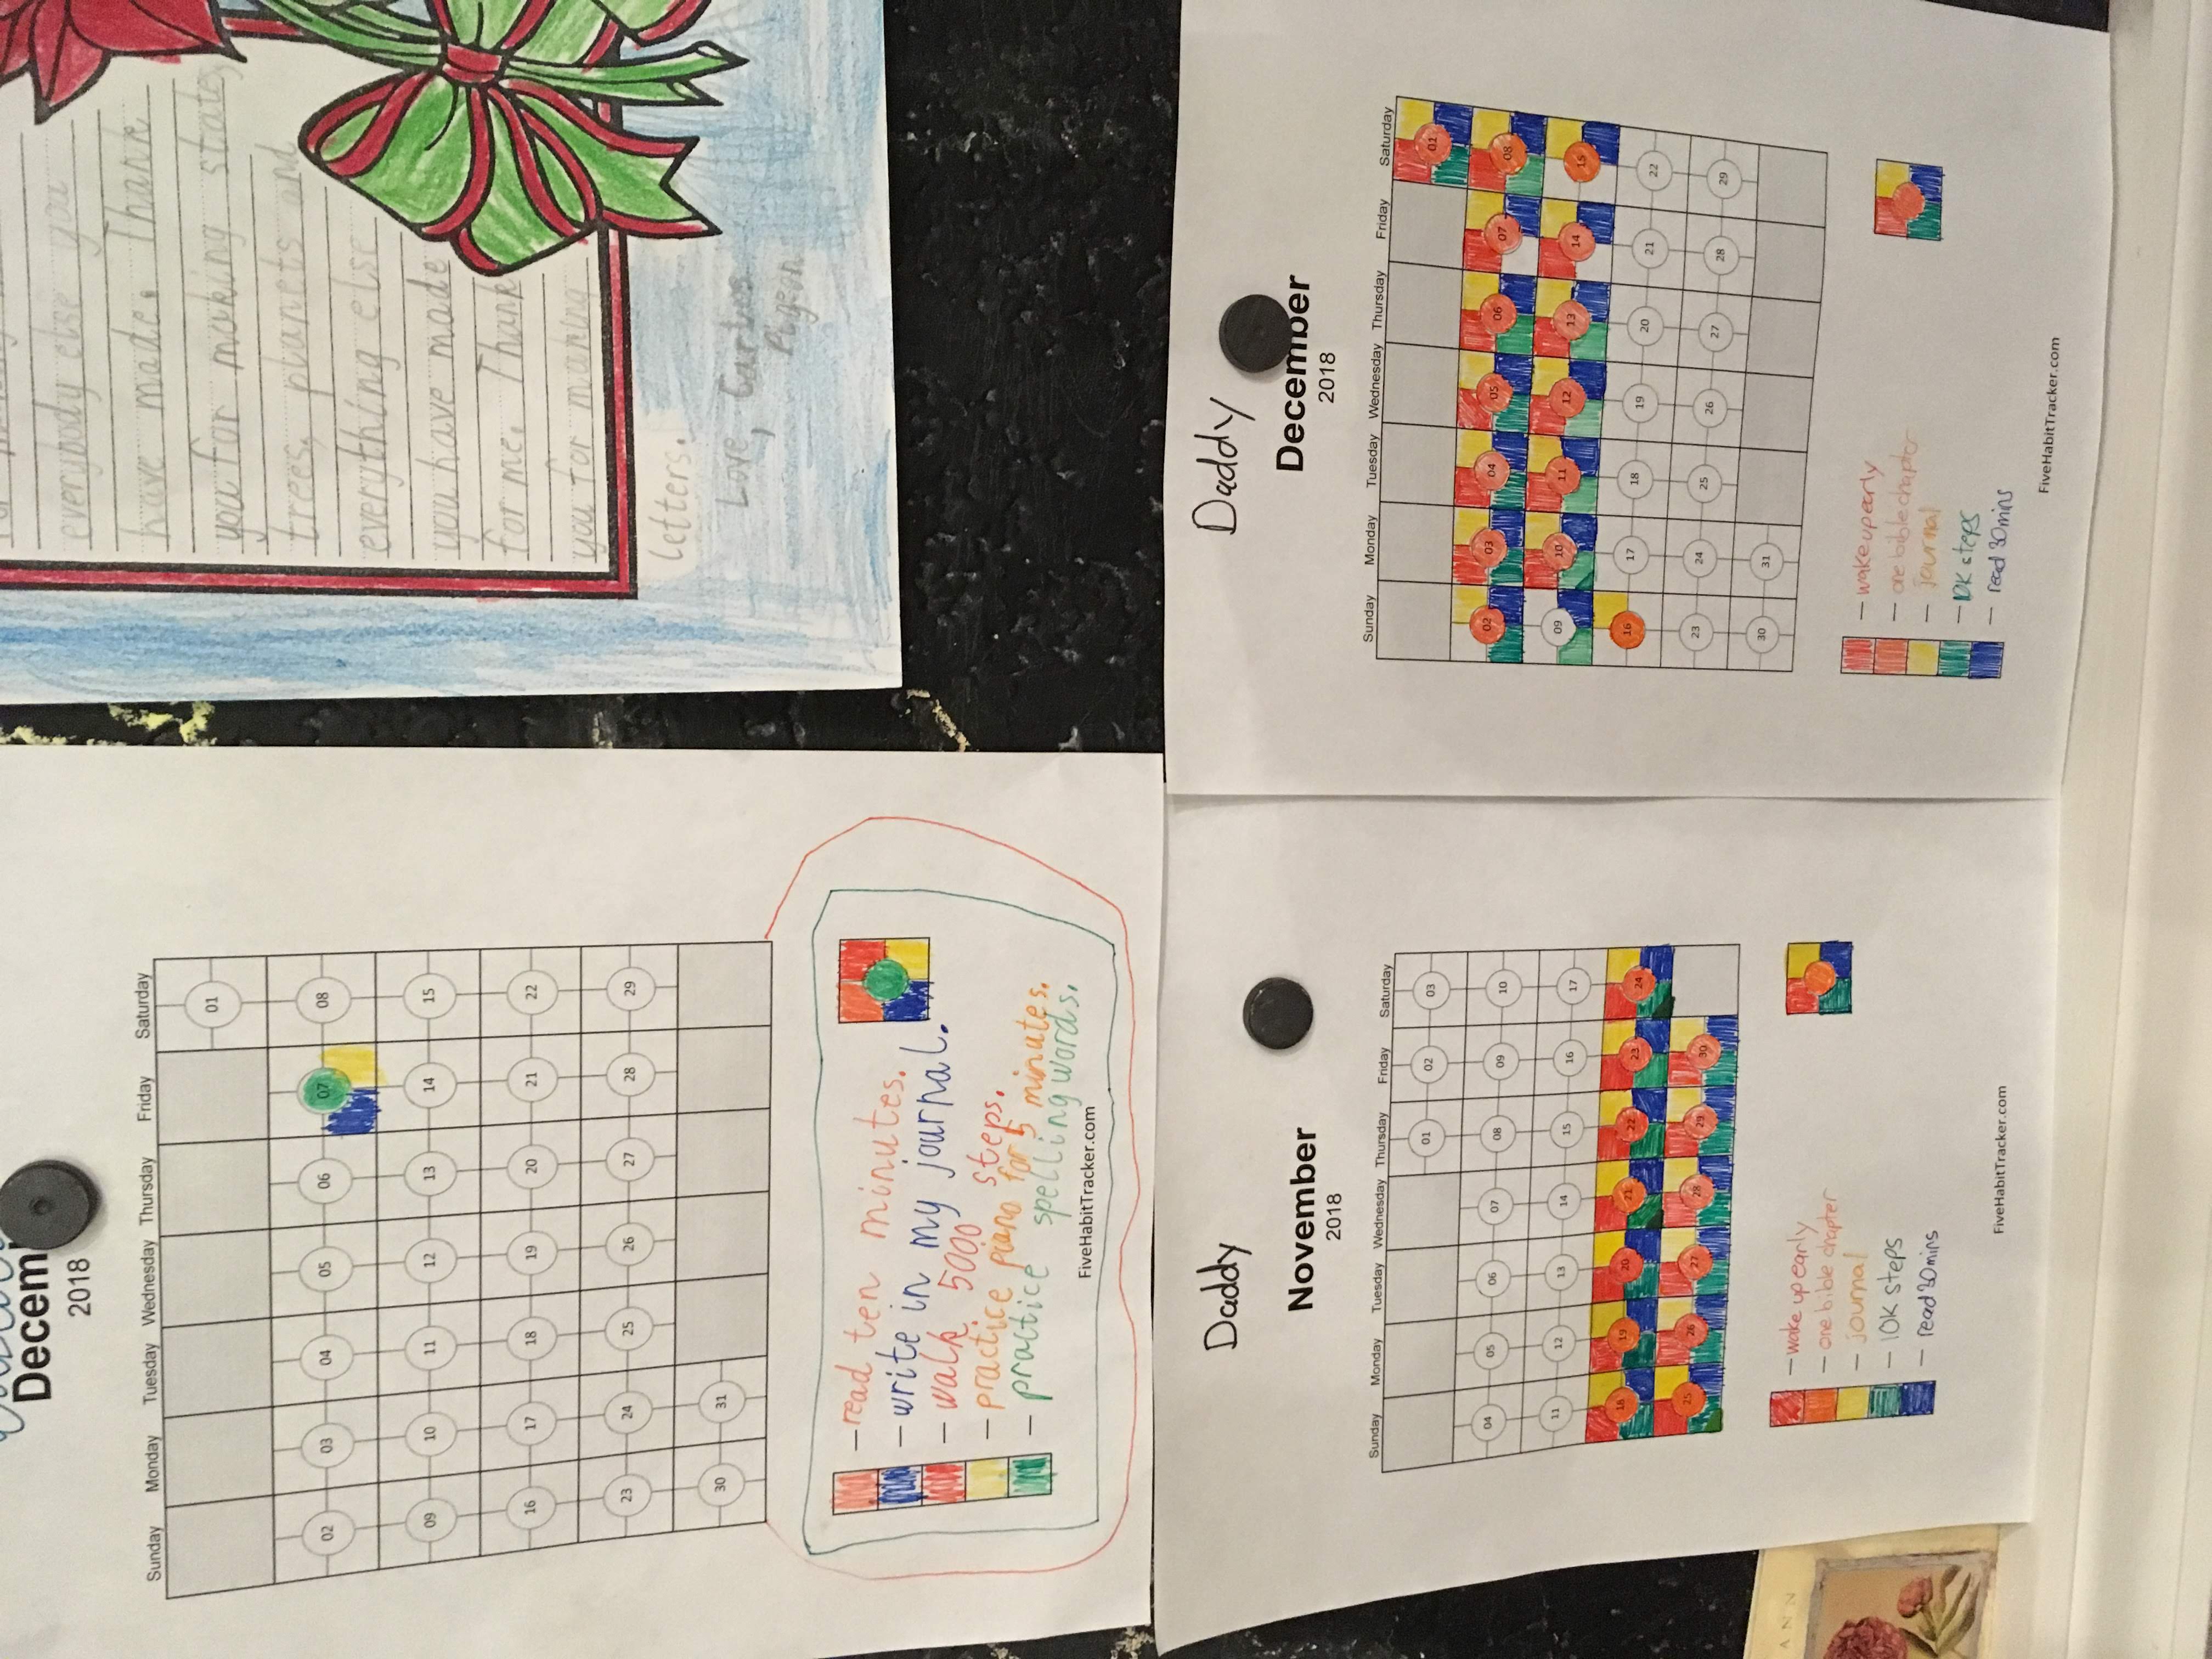 2018
Sunday Monday Tuesday Wednesday Thursday Friday Saturday
01
02 03 04 05 06 07 08
09 10 11 12 13 14 15
16 17 18 19 20 21 22
23 24 25 26 27 28 29
30 31
—read ten minutes.
—write in my journal.
—walk 5000 steps.
—practice piano for 5 minutes.
—practice spelling words.
FiveHabitTracker.com
everybody else you
have made. Thank
you for making
trees, planets and
everything else
you have made
for me. Thank
you for making
letters.
Love,
Pigeon
Daddy
November
2018
Sunday Monday Tuesday Wednesday Thursday Friday Saturday
01 02 03
04 05 06 07 08 09 10
11 12 13 14 15 16 17
18 19 20 21 22 23 24
25 26 27 28 29 30
—wake up early
—one bible chapter
—journal
—10K steps
—read 30 mins
FiveHabitTracker.com
Daddy
December
2018
Sunday Monday Tuesday Wednesday Thursday Friday Saturday
01
02 03 04 05 06 07 08
09 10 11 12 13 14 15
16 17 18 19 20 21 22
23 24 25 26 27 28 29
30 31
—wake up early
—one bible chapter
—journal
—10K steps
—read 30 mins
FiveHabitTracker.com
ANN